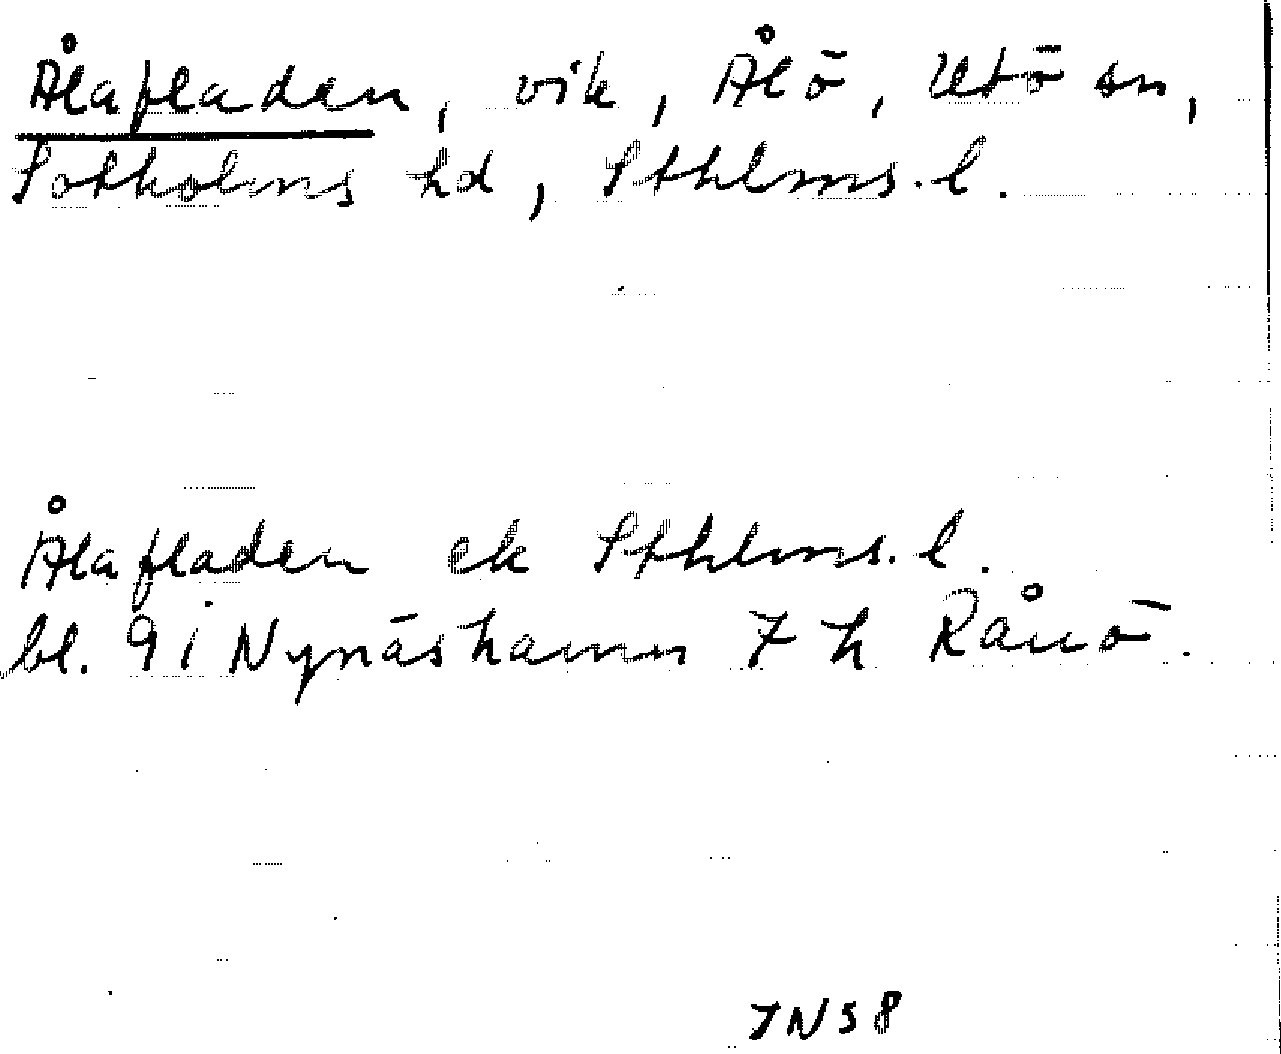 Ålafladen, vik, Ålö, Utö sn,
Sotholms hd, Sthlms. l.
Ålafladen ek Sthlms. l.
bl. 91 Nynäshamn 7 h Rånö.
JNS 8